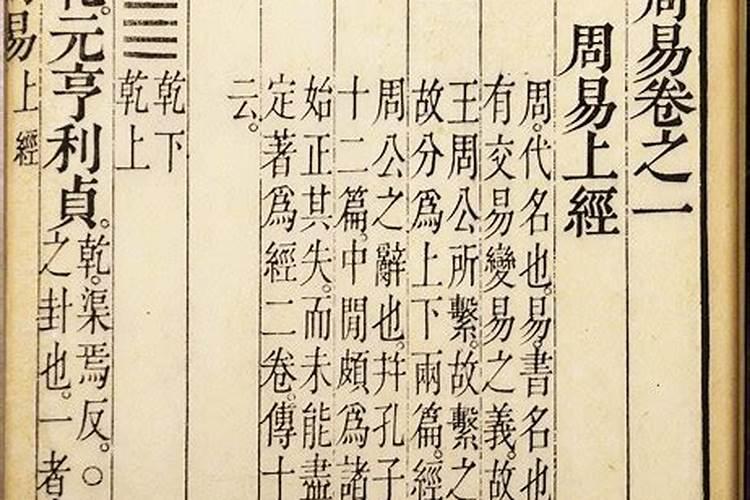 周易卷之一
周易上經
周。代名也。易。書名也
有交易變易之義。故
王周公所繫。故繫之
故分爲上下兩篇。經
周公之辭也。幷孔子
十二篇。中閒頗爲諸
始正其失。而未能盡
定著爲經二卷。傳十
云。
乾下
乾上
乾。元亨利貞。
乾。渠焉反。○
之封也。一者
易上經